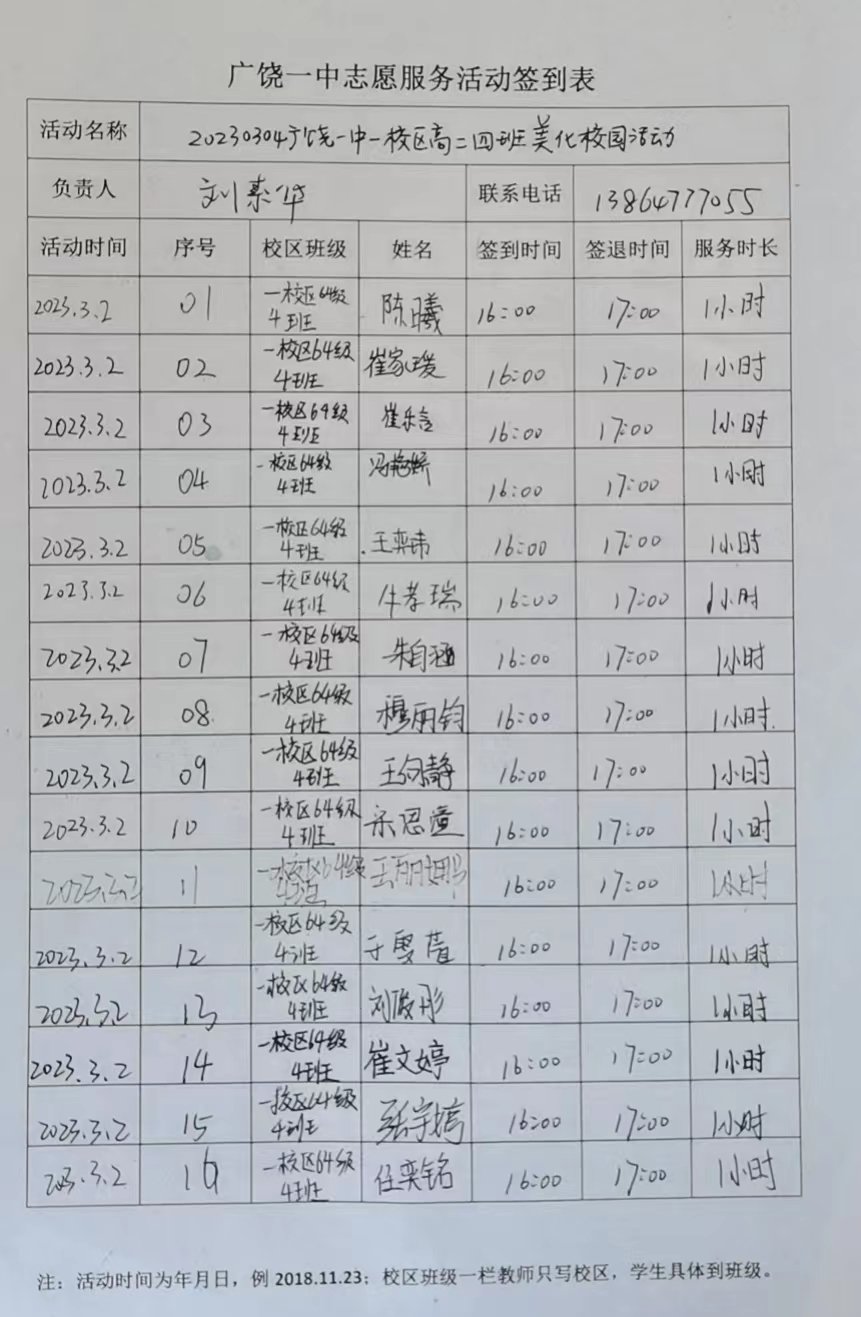 广饶一中志愿服务活动签到表
活动名称 20230304广饶一中一校区高二四班美化校园活动
负责人 刘素华 联系电话 13864777055
活动时间 序号 校区班级 姓名 签到时间 签退时间 服务时长
2023.3.2 01 一校区64级4班 陈曦 16:00 17:00 1小时
2023.3.2 02 一校区64级4班 崔家瑗 16:00 17:00 1小时
2023.3.2 03 一校区64级4班 崔乐言 16:00 17:00 1小时
2023.3.2 04 一校区64级4班 冯艳娇 16:00 17:00 1小时
2023.3.2 05 一校区64级4班 王奕玮 16:00 17:00 1小时
2023.3.2 06 一校区64级4班 牛孝瑞 16:00 17:00 1小时
2023.3.2 07 一校区64级4班 朱自涵 16:00 17:00 1小时
2023.3.2 08 一校区64级4班 穆丽钧 16:00 17:00 1小时
2023.3.2 09 一校区64级4班 王向静 16:00 17:00 1小时
2023.3.2 10 一校区64级4班 宋思萱 16:00 17:00 1小时
2023.3.2 11 一校区64级4班 16:00 17:00 1小时
2023.3.2 12 一校区64级4班 于雯萱 16:00 17:00 1小时
2023.3.2 13 一校区64级4班 刘俊彤 16:00 17:00 1小时
2023.3.2 14 一校区64级4班 崔文婷 16:00 17:00 1小时
2023.3.2 15 一校区64级4班 张宇婷 16:00 17:00 1小时
2023.3.2 16 一校区64级4班 任奕铭 16:00 17:00 1小时
注：活动时间为年月日，例 2018.11.23；校区班级一栏教师只写校区，学生具体到班级。